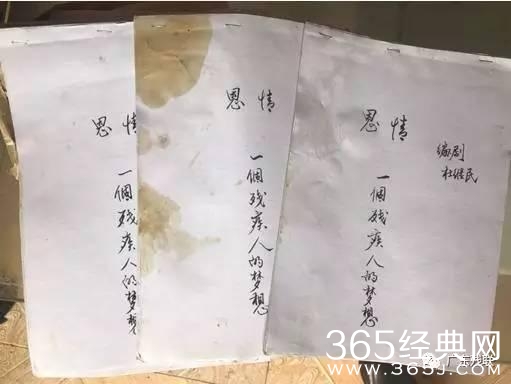 恩情
一個残疾人的梦想
恩情
一個残疾人的梦想
恩情
一個残疾人的梦想
编剧
杜继民
365经典网
www.365j.com
广东残联